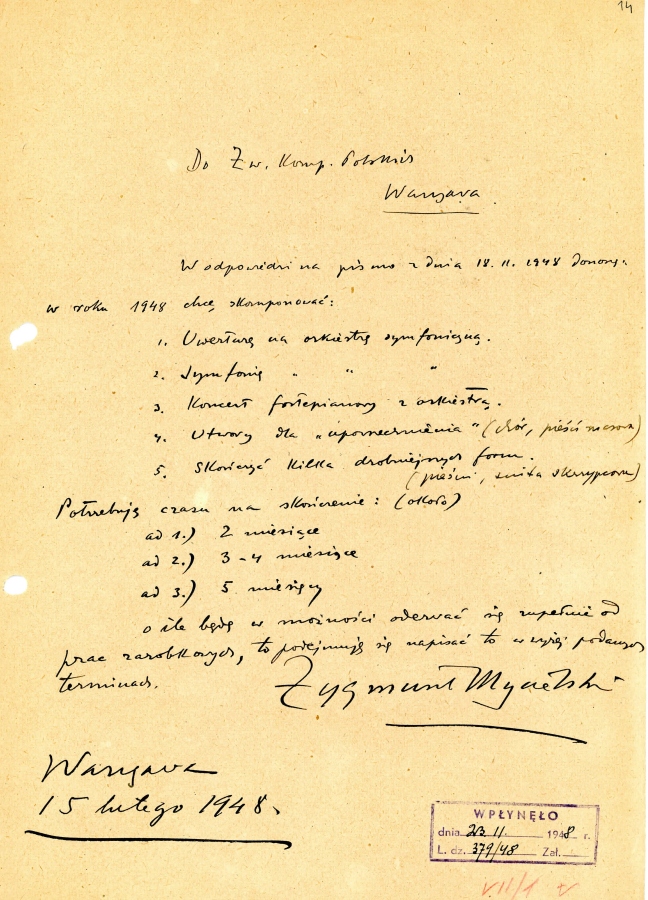 14
Do Zw. Komp. Polskich
Warszawa
W odpowiedzi na pismo z dnia 18. II. 1948 donoszę:
w roku 1948 chcę skomponować:
1. Uwerturę na orkiestrę symfoniczną.
2. Symfonię " " "
3. Koncert fortepianowy z orkiestrą.
4. Utwory dla „upowszechnienia" (chór, pieśń masowa)
5. Skończyć kilka drobniejszych form.
(pieśni, suita skrzypcowa)
Potrzebuję czasu na skończenie: (około)
ad 1.) 2 miesiące
ad 2.) 3-4 miesiące
ad 3.) 5 miesięcy
o ile będę w możności oderwać się zupełnie od
prac zarobkowych, to podejmuję się napisać to w wyżej podanych
terminach.
Zygmunt Mycielski
Warszawa
15 lutego 1948.
WPŁYNĘŁO
dnia 23 II. 1948 r.
L. dz. 379/48 Zał.
VII/1